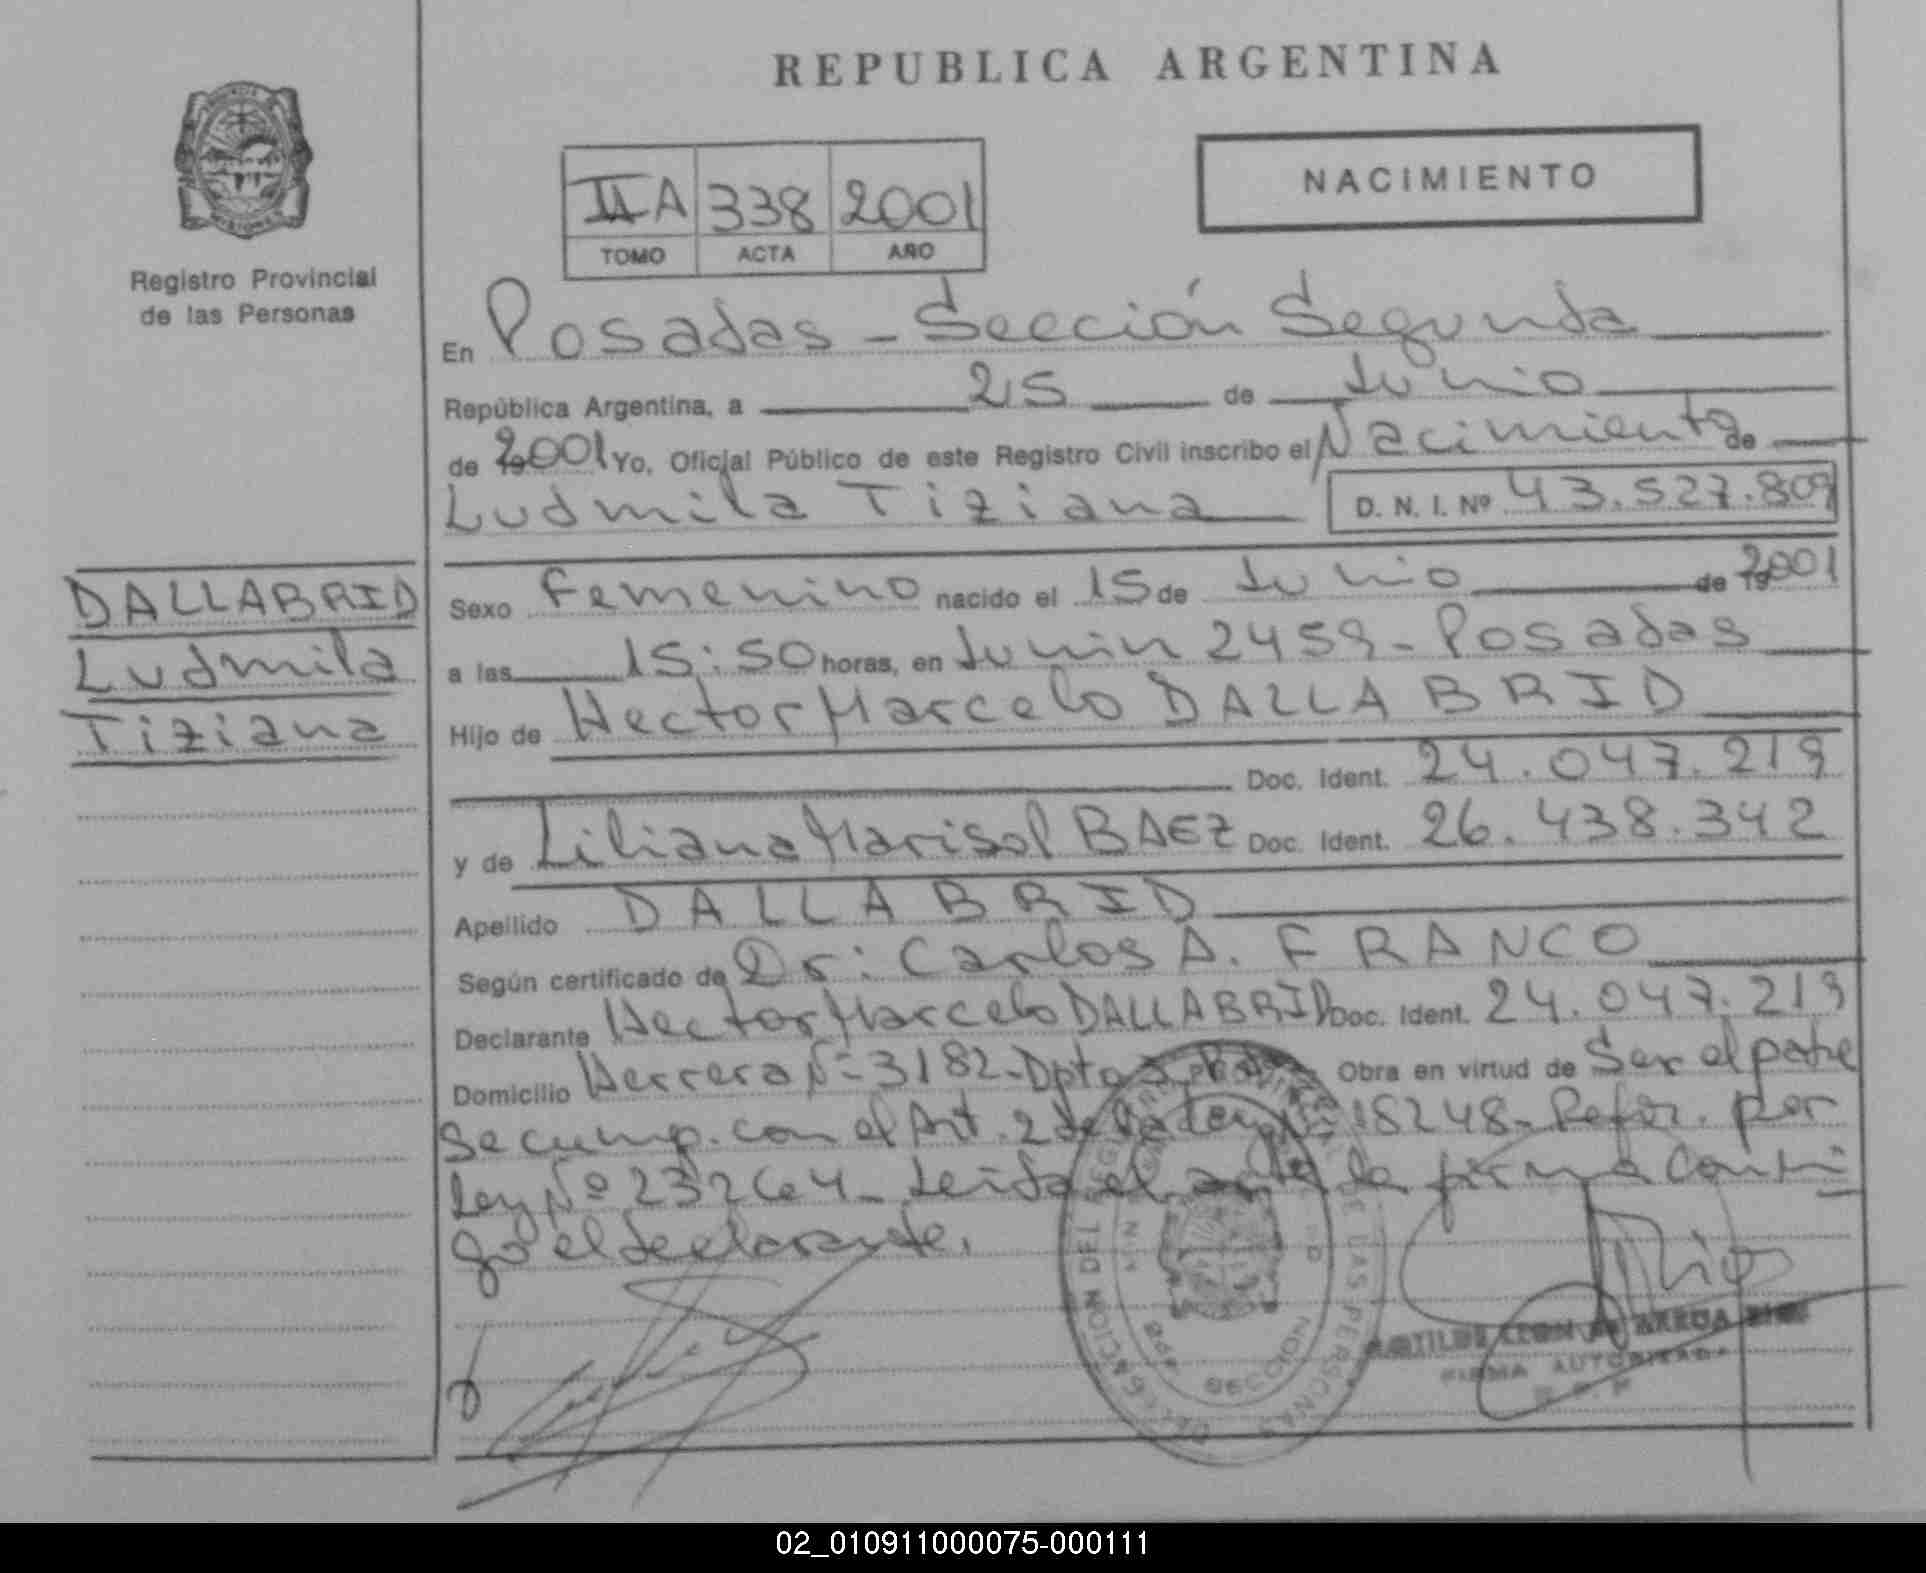 REPUBLICA ARGENTINA
NACIMIENTO
IIA 338 2001
TOMO ACTA AÑO
Registro Provincial
de las Personas
En Posadas - Sección Segunda
República Argentina, a 25 de Junio
de 2001 Yo, Oficial Público de este Registro Civil inscribo el Nacimiento de
Ludmila Tiziana D. N. I. Nº 43.527.809
DALLABRID
Ludmila
Tiziana
Sexo Femenino nacido el 15 de Junio de 2001
a las 15:50 horas, en Junin 2459 - Posadas
Hijo de Hector Marcelo DALLABRID
Doc. Ident. 24.047.219
y de Liliana Marisol BAEZ Doc. Ident. 26.438.342
Apellido DALLABRID
Según certificado de Dr: Carlos A. FRANCO
Declarante Hector Marcelo DALLABRID Doc. Ident. 24.047.219
Domicilio Herrera Nº 3182 - Dpto Obra en virtud de Ser el padre
Se cump. con el Art. 2 de la Ley Nº 18248 - Refor. por
Ley Nº 23264 - Leída el acta la firma conmi
go el declarante.
FIRMA AUTORIZADA
02_010911000075-000111